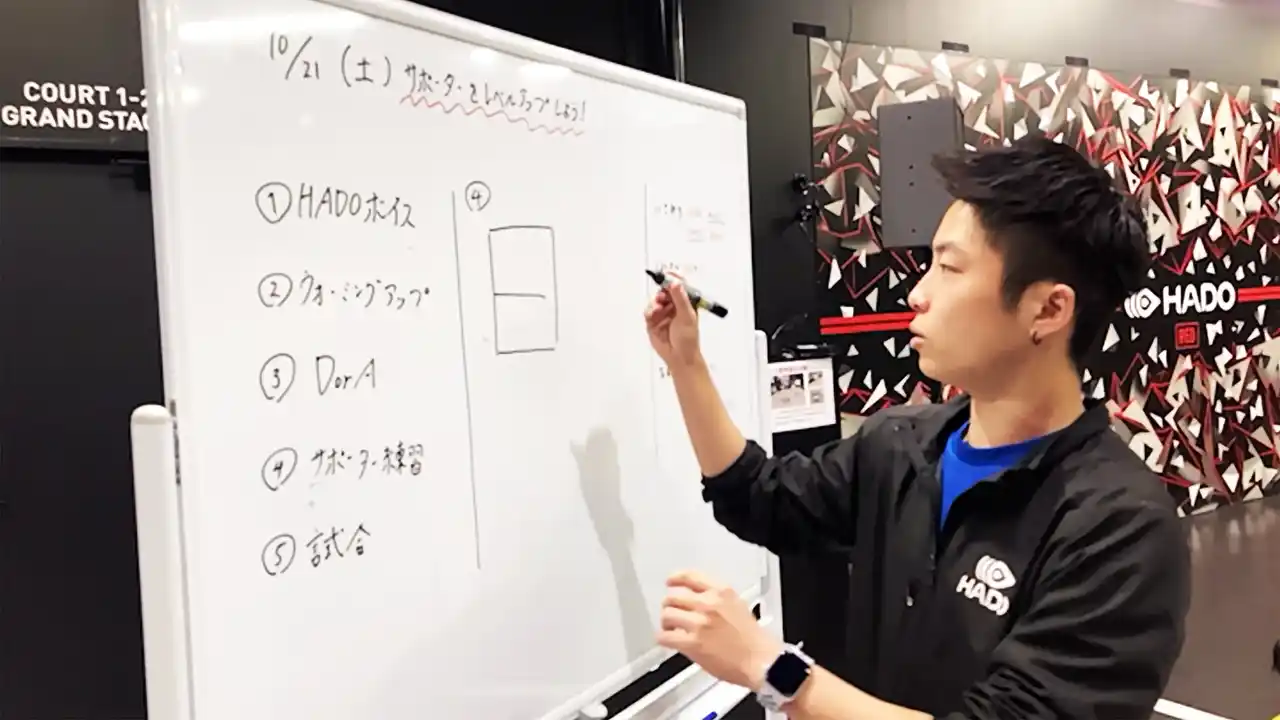 COURT 1-2
GRAND STAG
10/21 (土) サポーターをレベルアップしよう!
① HADOボイス
② ウォーミングアップ
③ DorA
④ サポーター練習
⑤ 試合
④
HADO
HADO